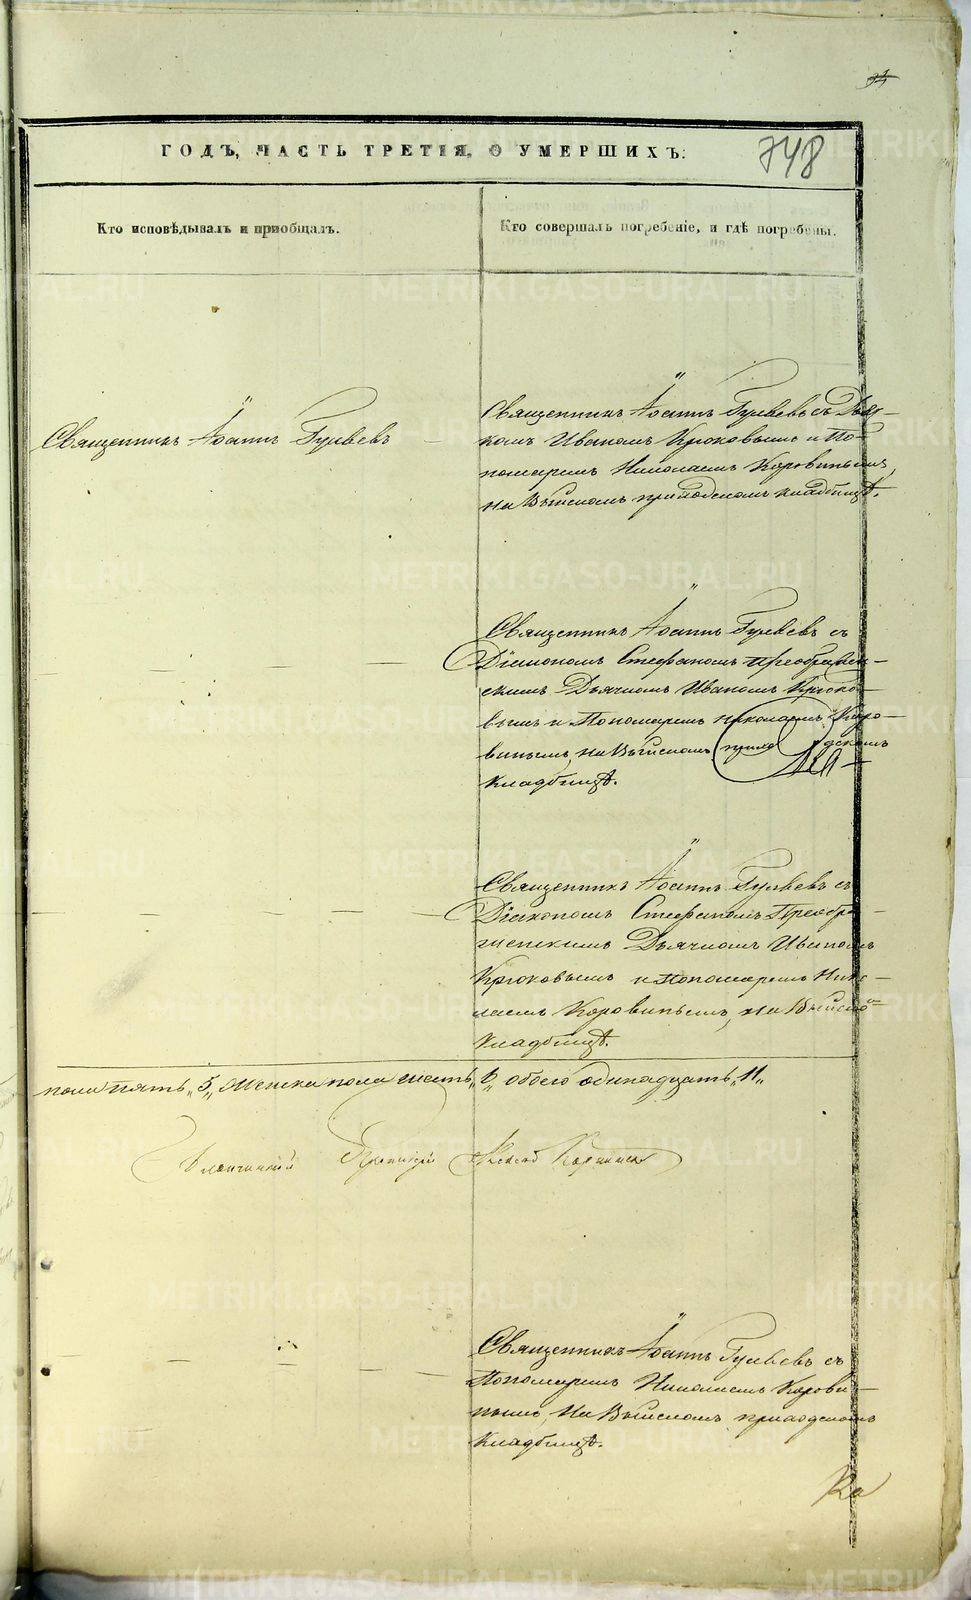 ГОДЪ, ЧАСТЬ ТРЕТІЯ, О УМЕРШИХЪ.
748
Кто исповѣдывалъ и пріобщалъ.
Кто совершалъ погребеніе, и гдѣ погребены.
Священникъ Іоаннъ Гуляевъ
Священникъ Іоаннъ Гуляевъ съ Дьяч-
комъ Иваномъ Крюковымъ и По-
номаремъ Николаемъ Коровинымъ,
на Выйскомъ приходскомъ кладбищѣ.
Священникъ Іоаннъ Гуляевъ съ
Діакономъ Стефаномъ Преображен-
скимъ Дьячкомъ Иваномъ Крюко-
вымъ и Пономаремъ Николаемъ Коро-
винымъ, на Выйскомъ приходскомъ
кладбищѣ.
Священникъ Іоаннъ Гуляевъ съ
Діакономъ Стефаномъ Преобра-
женскимъ Дьячкомъ Иваномъ
Крюковымъ и Пономаремъ Нико-
лаемъ Коровинымъ, на Выйском
кладбищѣ.
пола пять „5„ Женска пола шесть „6„ обоего одинадцать „11„
Благочинный
Священникъ Іоаннъ Гуляевъ съ
Пономаремъ Николаемъ Корови-
нымъ, на Выйскомъ приходскомъ
кладбищѣ.
METRIKI.GASO-URAL.RU